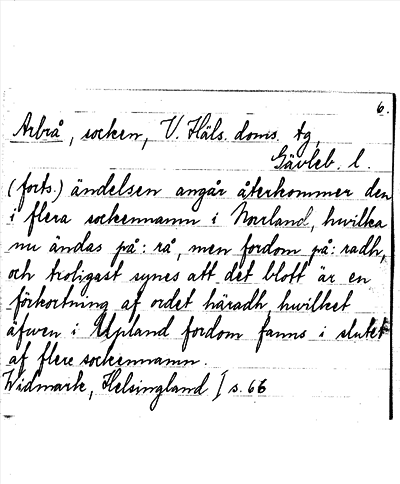 6.
Arbrå, socken, V. Häls. doms. tg,
Gävleb. l.
(forts.) ändelsen angår återkommer den
i flera sockennamn i Norrland, hwilka
nu ändas på: rå, men fordom på: radh,
och troligast synes att det blott är en
förkortning af ordet häradh hwilket
äfwen i Upland fordom fanns i slutet
af flere sockennamn.
Widmark, Helsingland I s. 66